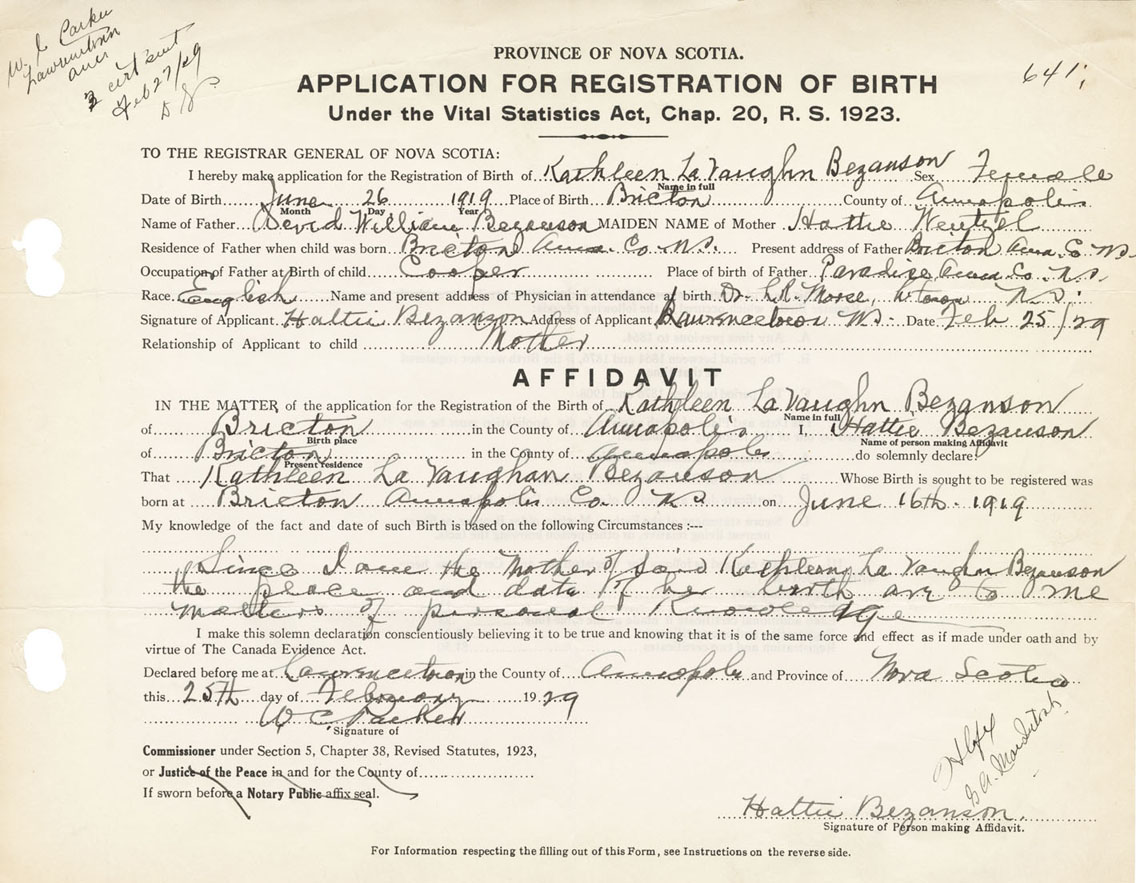 W. C. Parker
Lawrencetown
Anna
2 cert sent
Feb 27/29
641
PROVINCE OF NOVA SCOTIA.
APPLICATION FOR REGISTRATION OF BIRTH
Under the Vital Statistics Act, Chap. 20, R. S. 1923.
TO THE REGISTRAR GENERAL OF NOVA SCOTIA:
I hereby make application for the Registration of Birth of Kathleen La Vaughn Bezanson Sex Female
Name in full
Date of Birth June 26 1919 Place of Birth Bricton County of Annapolis
Month Day Year
Name of Father David William Bezanson MAIDEN NAME of Mother Hattie Wentzel
Residence of Father when child was born Bricton Anna. Co. N.S. Present address of Father Bricton Anna. Co N.S.
Occupation of Father at Birth of child Cooper Place of birth of Father Paradise Anna Co. N.S.
Race English Name and present address of Physician in attendance at birth Dr. L.R. Morse, N.S.
Signature of Applicant Hattie Bezanson Address of Applicant Lawrencetown N.S. Date Feb 25/29
Relationship of Applicant to child Mother
AFFIDAVIT
IN THE MATTER of the application for the Registration of the Birth of Kathleen La Vaughn Bezanson
Name in full
of Bricton in the County of Annapolis I, Hattie Bezanson
Birth place Name of person making Affidavit
of Bricton in the County of Annapolis do solemnly declare:
Present residence
That Kathleen La Vaughan Bezanson Whose Birth is sought to be registered was
born at Bricton Annapolis Co. N.S on June 16th 1919
My knowledge of the fact and date of such Birth is based on the following Circumstances :---
Since I am the Mother of said Kathleen La Vaughn Bezanson
the place and date of her birth are to me
matters of personal Knowledge
I make this solemn declaration conscientiously believing it to be true and knowing that it is of the same force and effect as if made under oath and by
virtue of The Canada Evidence Act.
Declared before me at Lawrencetown in the County of Annapolis and Province of Nova Scotia
this 25th day of February 1929
W C Parker
Signature of
Commissioner under Section 5, Chapter 38, Revised Statutes, 1923,
or Justice of the Peace in and for the County of
If sworn before a Notary Public affix seal.
Hattie Bezanson
Signature of Person making Affidavit.
For Information respecting the filling out of this Form, see Instructions on the reverse side.